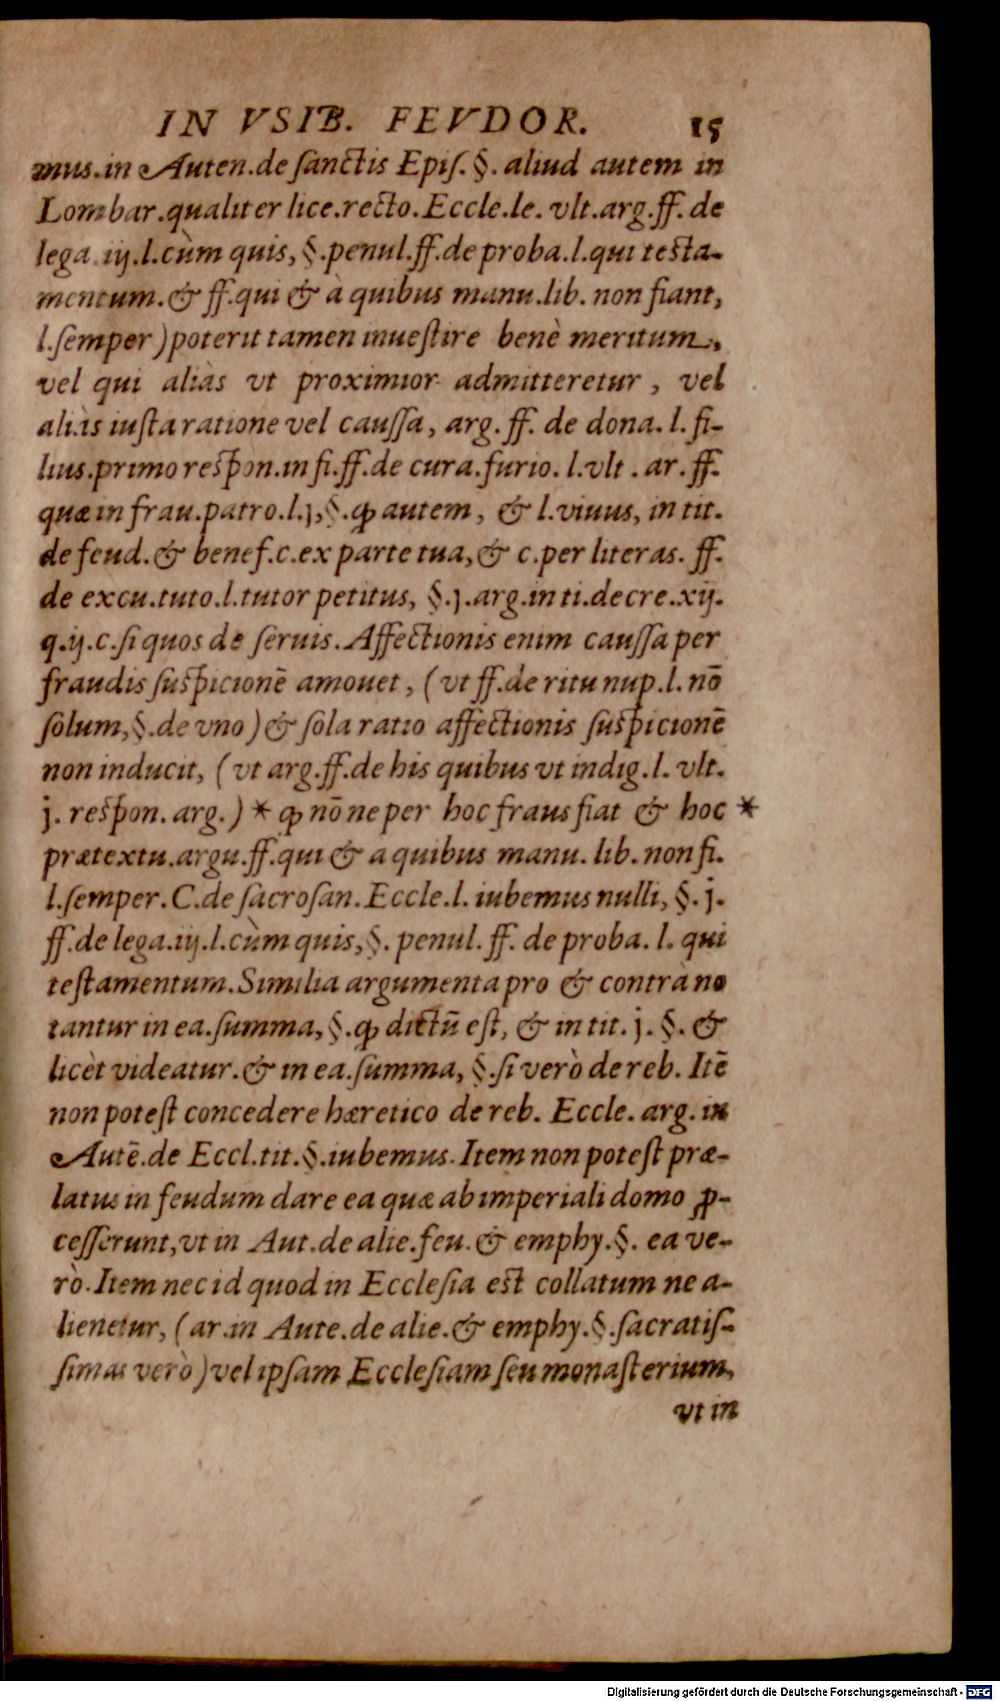 IN VSIB. FEVDOR. 15
mus.in Auten.de sanctis Epiſ. §. aliud autem in
Lombar.qualiter lice.recto.Eccle.le. vlt.arg.ff. de
lega.iij.l.cùm quis, §.penul.ff.de proba.l.qui testa-
mentum. & ff.qui & à quibus manu.lib. non fiant,
l.ſemper) poterit tamen inueſtire benè meritum,
vel qui aliàs vt proximior admitteretur, vel
aliàs iuſta ratione vel cauſſa, arg. ff. de dona. l. fi-
lius.primo reſpon.in fi.ff.de cura.furio. l.vlt. ar. ff.
quæ in frau.patro.l.j,§.ꝙ autem, & l.viuus, in tit.
de feud. & benef.c.ex parte tua, & c.per literas. ff.
de excu.tuto.l.tutor petitus, §.j.arg.in ti.decre.xij.
q.ij.c.ſi quos de ſeruis. Affectionis enim cauſſa per
fraudis ſuſpicionē amouet, (vt ff.de ritu nup.l. nō
ſolum,§.de vno) & ſola ratio affectionis ſuſpicionē
non inducit, (vt arg.ff.de his quibus vt indig.l. vlt.
j. reſpon. arg.) * ꝙ nō ne per hoc fraus fiat & hoc *
prætextu.argu.ff.qui & a quibus manu. lib. non fi.
l.ſemper. C.de ſacroſan. Eccle.l. iubemus nulli, §. j.
ff.de lega.iij.l.cùm quis,§. penul. ff. de proba. l. qui
teſtamentum. Similia argumenta pro & contrà no
tantur in ea.ſumma, §.ꝙ dictū eſt, & in tit. j. §. &
licèt videatur. & in ea.ſumma, §.ſi verò de reb. Itē
non poteſt concedere hæretico de reb. Eccle. arg. in
Autē.de Eccl.tit.§.iubemus. Item non poteſt præ-
latus in feudum dare ea quæ ab imperiali domo ꝓ-
ceſſerunt, vt in Aut.de alie.feu. & emphy.§. ea ve-
rò. Item nec id quod in Eccleſia est collatum ne a-
lienetur, (ar.in Aute.de alie. & emphy.§.ſacratiſ-
ſimas verò) vel ipſam Eccleſiam ſeu monaſterium,
vt in
Digitalisierung gefördert durch die Deutsche Forschungsgemeinschaft - DFG